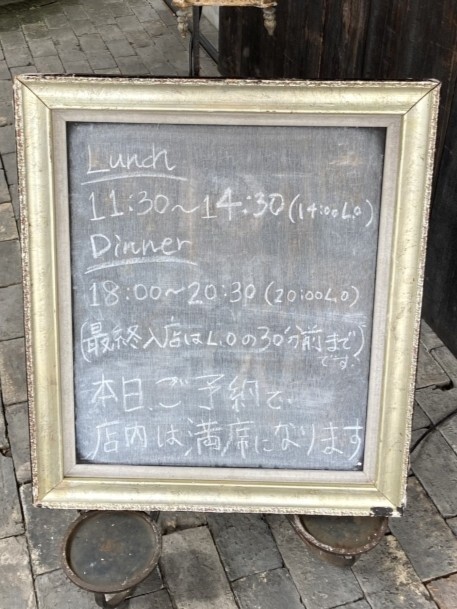 Lunch
11:30～14:30(14:00L.O)
Dinner
18:00～20:30(20:00L.O)
(最終入店はL.Oの30分前まで
です.)
本日、ご予約で、
店内は満席になります